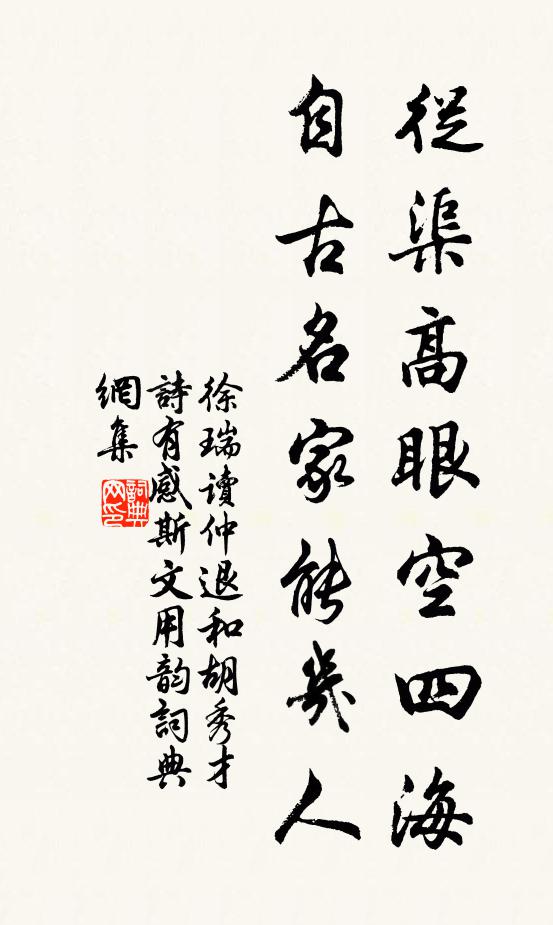 從渠高眼空四海
自古名家能幾人
徐瑞讀仲退和胡秀才
詩有感斯文用韵詞典
網集
詞典
网印